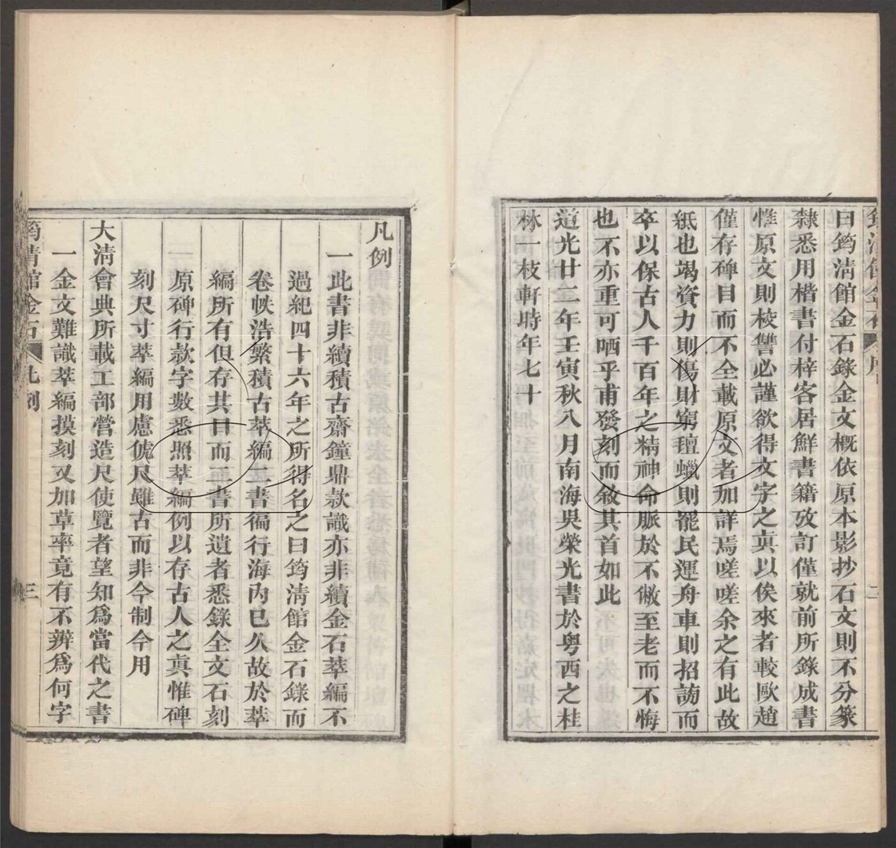 曰筠清館金石錄金文概依原本影抄石文則不分篆
隸悉用楷書付梓客居鮮書籍攷訂僅就前所錄成書
惟原文則校讐必謹欲得文字之真以俟來者較歐趙
僅存碑目而不全載原文者加詳焉嗟嗟余之有此故
紙也竭資力則傷財窮氊蠟則罷民運舟車則招謗而
卒以保古人千百年之精神命脈於不敝至老而不悔
也不亦重可哂乎甫發刻而敘其首如此
道光廿二年壬寅秋八月南海吳榮光書於粵西之桂
林一枝軒時年七十
二
凡例
一此書非續積古齋鐘鼎款識亦非續金石萃編不
過紀四十六年之所得名之曰筠清館金石錄而
卷帙浩繁積古萃編二書徧行海內已久故於萃
編所有但存其目而二書所遺者悉錄全文石刻
原碑行款字數悉照萃編例以存古人之真惟碑
刻尺寸萃編用慮俿尺雖古而非今制今用
大清會典所載工部營造尺使覽者望知為當代之書
一金文難識萃編摸刻又加草率竟有不辨為何字
筠清館金石 凡例 三